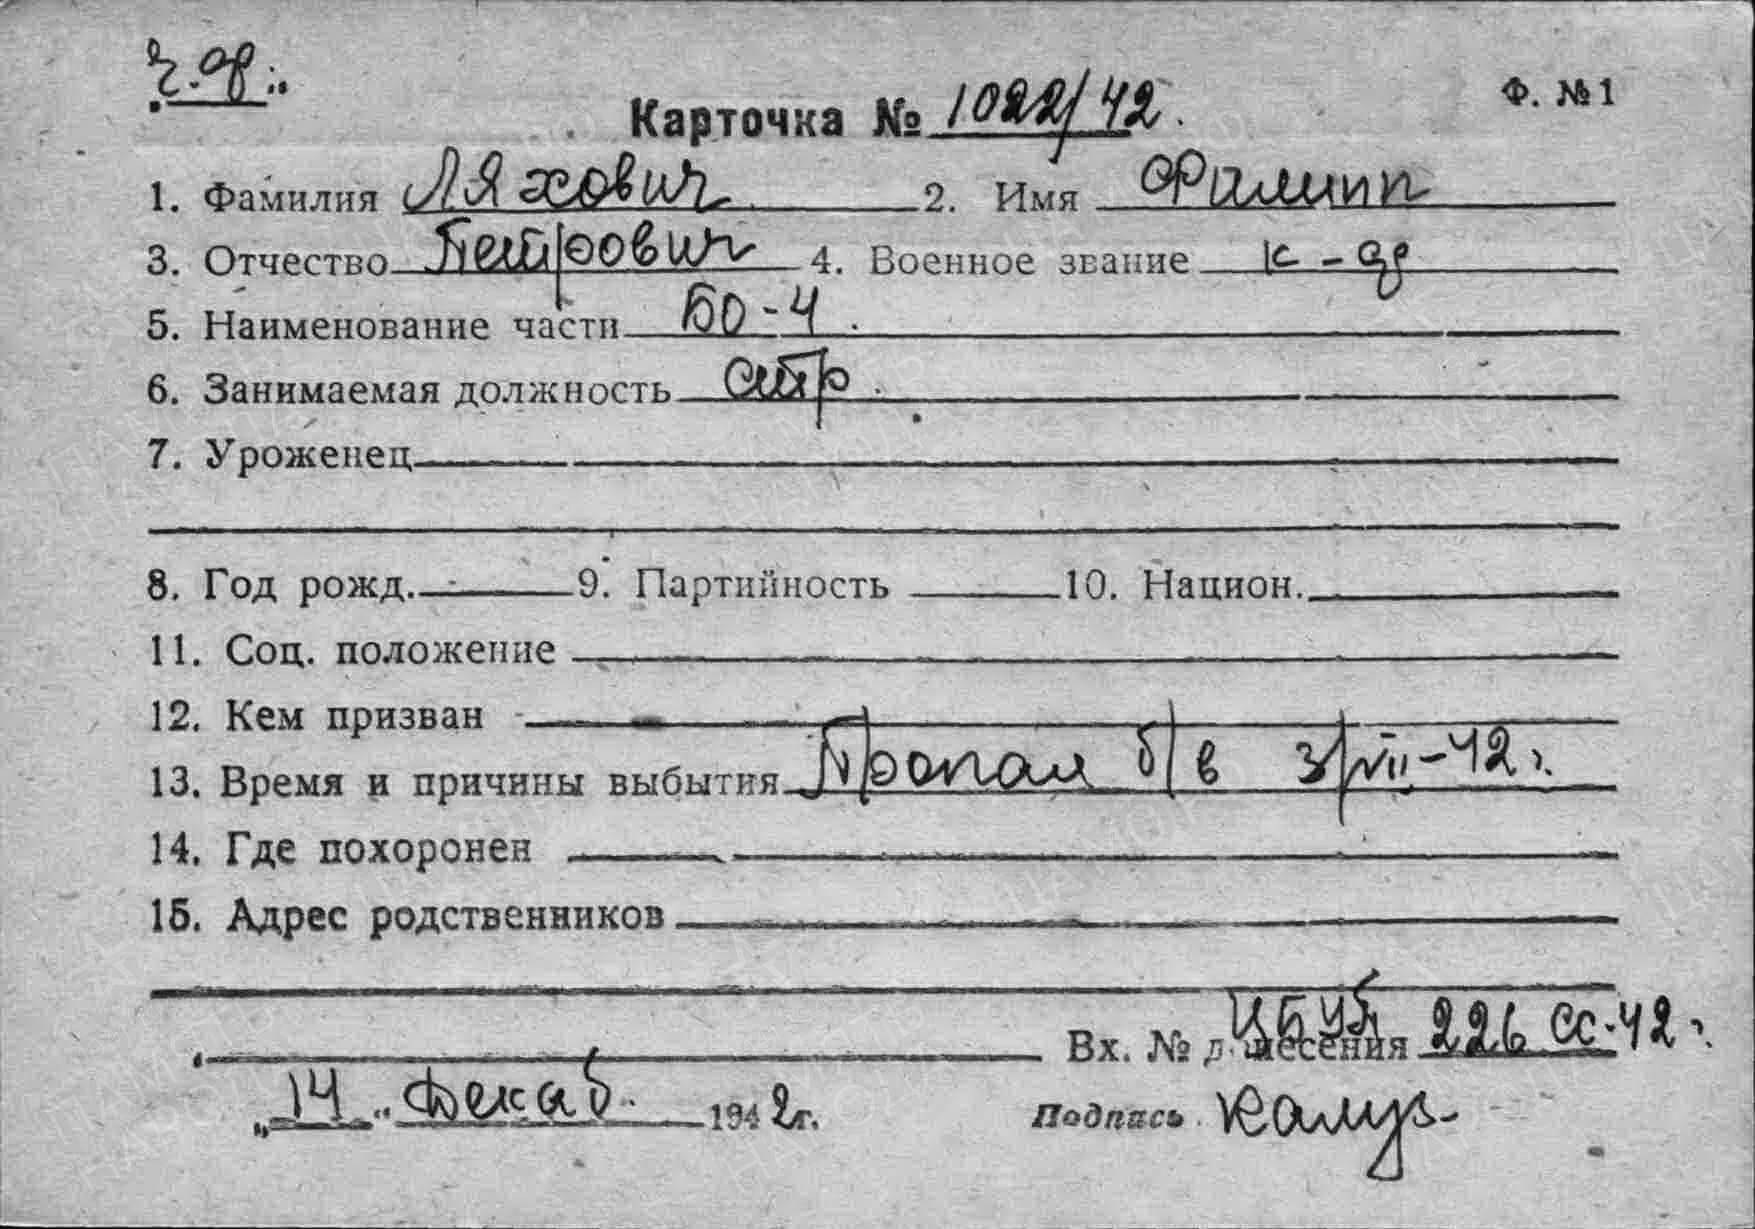 ч.ф.
Карточка № 1022/42. Ф. №1
1. Фамилия Ляхович 2. Имя Филипп
3. Отчество Петрович 4. Военное звание к-ф
5. Наименование части БО-4.
6. Занимаемая должность стр.
7. Уроженец
8. Год рожд. 9. Партийность 10. Национ.
11. Соц. положение
12. Кем призван
13. Время и причины выбытия Пропал б/в 3/VII-42г.
14. Где похоронен
15. Адрес родственников
Вх. № донесения 226 сс-42г.
„14" Декаб. 1942г. Подпись